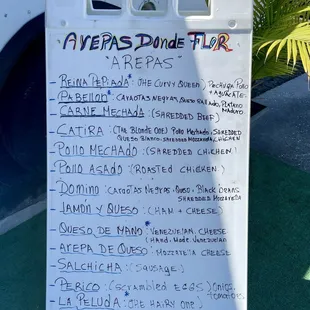 AREPAS DONDE FLOR
"AREPAS"
- REINA PEPIADA* (THE CURVY QUEEN) Pechuga Pollo
+ AGUACATE.
- PABELLON* CARAOTAS NEGRAS, QUESO RALLADO, PLATANO
MADURO
- CARNE MECHADA (SHREDDED BEEF)
- CATIRA (THE BLONDE ONE) POLLO MECHADO, SHREDDED
QUESO BLANCO, SHREDDED MOZZARELLA, CHICKEN
- POLLO MECHADO: (SHREDDED CHICKEN)
- POLLO ASADO: (ROASTED CHICKEN)
- DOMINO: CARAOTAS NEGRAS, QUESO, BLACK beans
SHREDDED MOZZARELLA
- JAMÓN Y QUESO: (HAM + CHEESE)
- QUESO DE MANO* VENEZUELAN, CHEESE
(HAND, MADE, VENEZUELAN)
- AREPA DE QUESO: MOZZARELLA CHEESE
- SALCHICHA: (Sausage)
- PERICO: (SCRAMBLED EGGS) Onion,
tomatoes
- LA PELUDA* (THE HAIRY ONE)